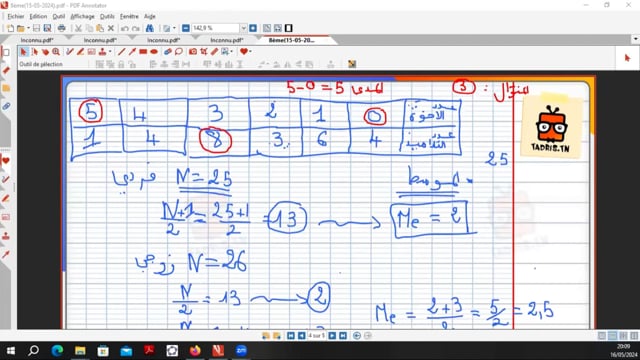 8ème(15-05-2024).pdf - PDF Annotator
Fichier Edition Affichage Outils Fenêtre Aide
142,9 %
Inconnu.pdf* Inconnu.pdf* Inconnu.pdf* Inconnu.pdf* 8ème(15-05-20...
Outil de sélection
المنوال : 3 المدى 5 = 0 - 5
5 4 3 2 1 0 عدد الاخوة
1 4 8 3 6 4 عدد التلاميذ
TADRIS.TN
25
N = 25 فردي
الموسط
N+1/2 = 25+1/2 = 13 → Me = 2
N = 26 زوجي
N/2 = 13 → 2
Me = 2+3/2 = 5/2 = 2,5
4 sur 5
20:09
16/05/2024